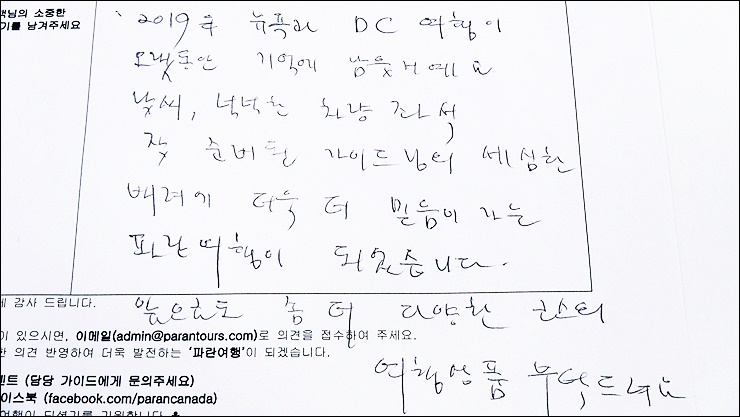 객님의 소중한
기를 남겨주세요
2019年 뉴욕과 DC 여행이
오랫동안 기억에 남을거예요
날씨, 넉넉한 차량 좌석,
잘 준비된 가이드님의 세심한
배려에 더욱 더 믿음이 가는
파란여행이 되었습니다.
세 감사 드립니다.
앞으로도 좀 더 다양한
이 있으시면, 이메일(admin@parantours.com)로 의견을 접수하여 주세요.
한 의견 반영하여 더욱 발전하는 '파란여행'이 되겠습니다.
여행상품 부탁드려요
벤트 (담당 가이드에게 문의주세요)
이스북 (facebook.com/parancanada)